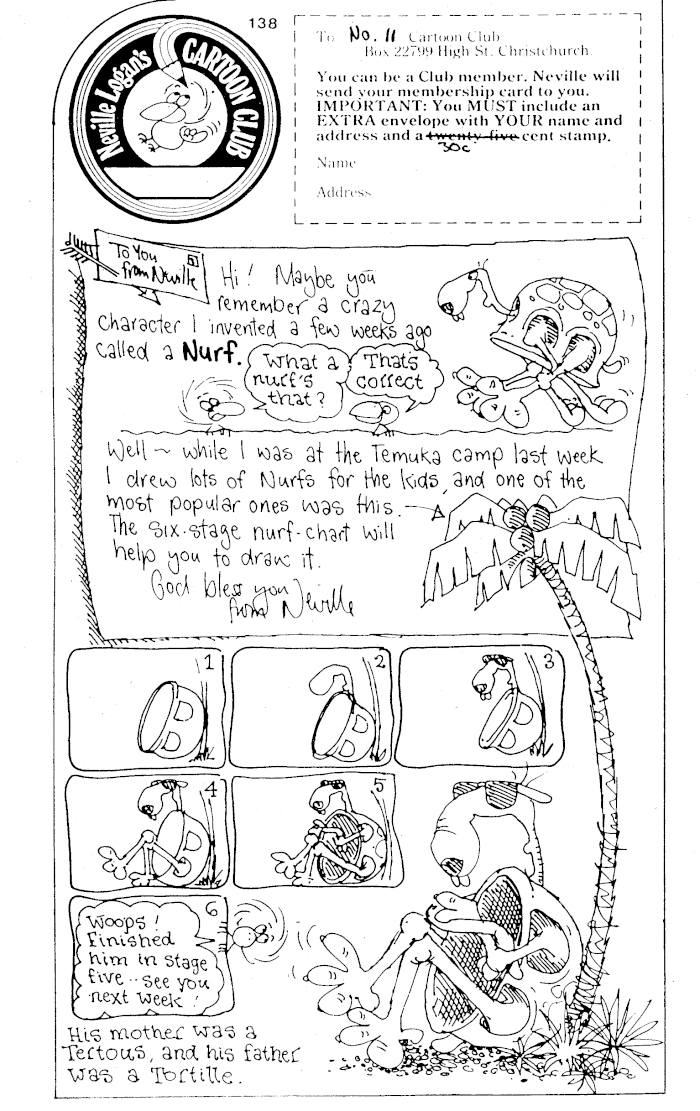 Neville Logan's
CARTOON CLUB
138
To No. 11 Cartoon Club
Box 22799 High St. Christchurch.
You can be a Club member. Neville will
send your membership card to you.
IMPORTANT: You MUST include an
EXTRA envelope with YOUR name and
address and a twenty-five cent stamp.
30c
Name
Address
To You
from Neville
Hi! Maybe you
remember a crazy
character I invented a few weeks ago
called a Nurf.
What a
nurf's
that?
That's
correct
Well ~ while I was at the Temuka camp last week
I drew lots of Nurfs for the kids, and one of the
most popular ones was this.
The six-stage nurf-chart will
help you to draw it.
God bless you
from Neville
1
2
3
4
5
6
Woops!
Finished
him in stage
five -- see you
next week!
His mother was a
Tertous, and his father
was a Tortille.